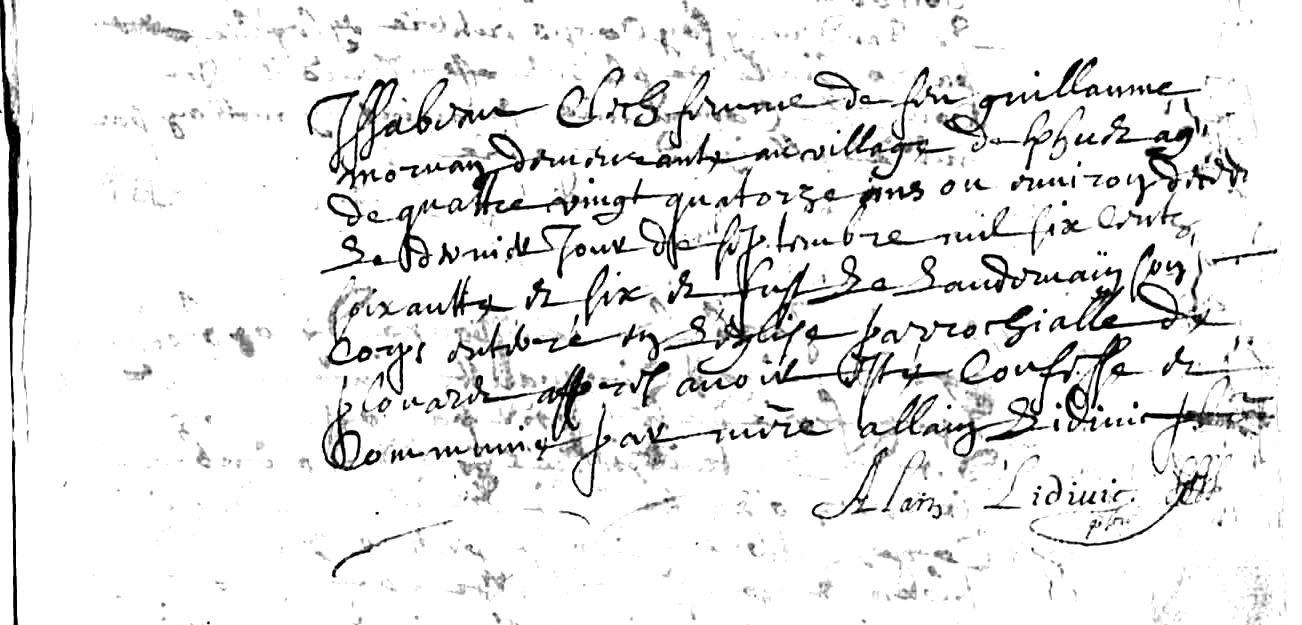 Issabeau Cloch femme de feu guillaume
morvan demeurante au village de agé
de quattre vingt quatorze ans ou environ deceda
le dernier Jour de septembre mil six centz
soixantte et six et fust le landemain son
corps enterré en l'églisse parrochialle de
plouaré appres avoir esté confesse et
communié par mire allain Lidivic pbre
Alain Lidivic
pbre